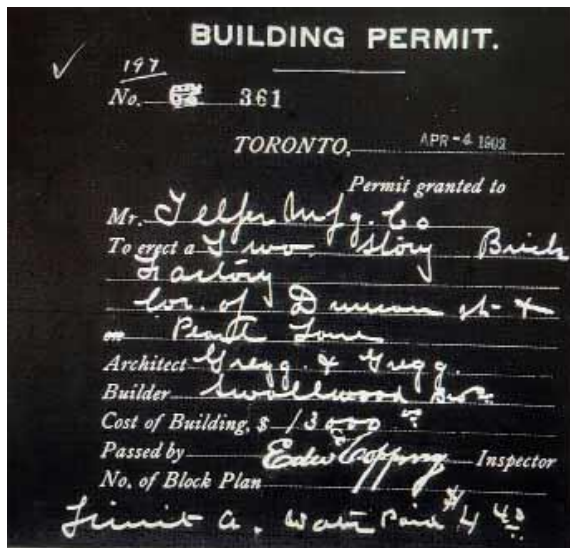 BUILDING PERMIT.
197
No. 361
TORONTO, APR -4 1902
Permit granted to
Mr. Telfer Mfg. Co
To erect a Two story Brick
Factory
Cor. of Duncan st. &
on Pearl
Architect Gregg & Gregg.
Builder Smallwood Bros.
Cost of Building, $ 13000
Passed by Edw Copping Inspector
No. of Block Plan
Limit A. Water Paid $4